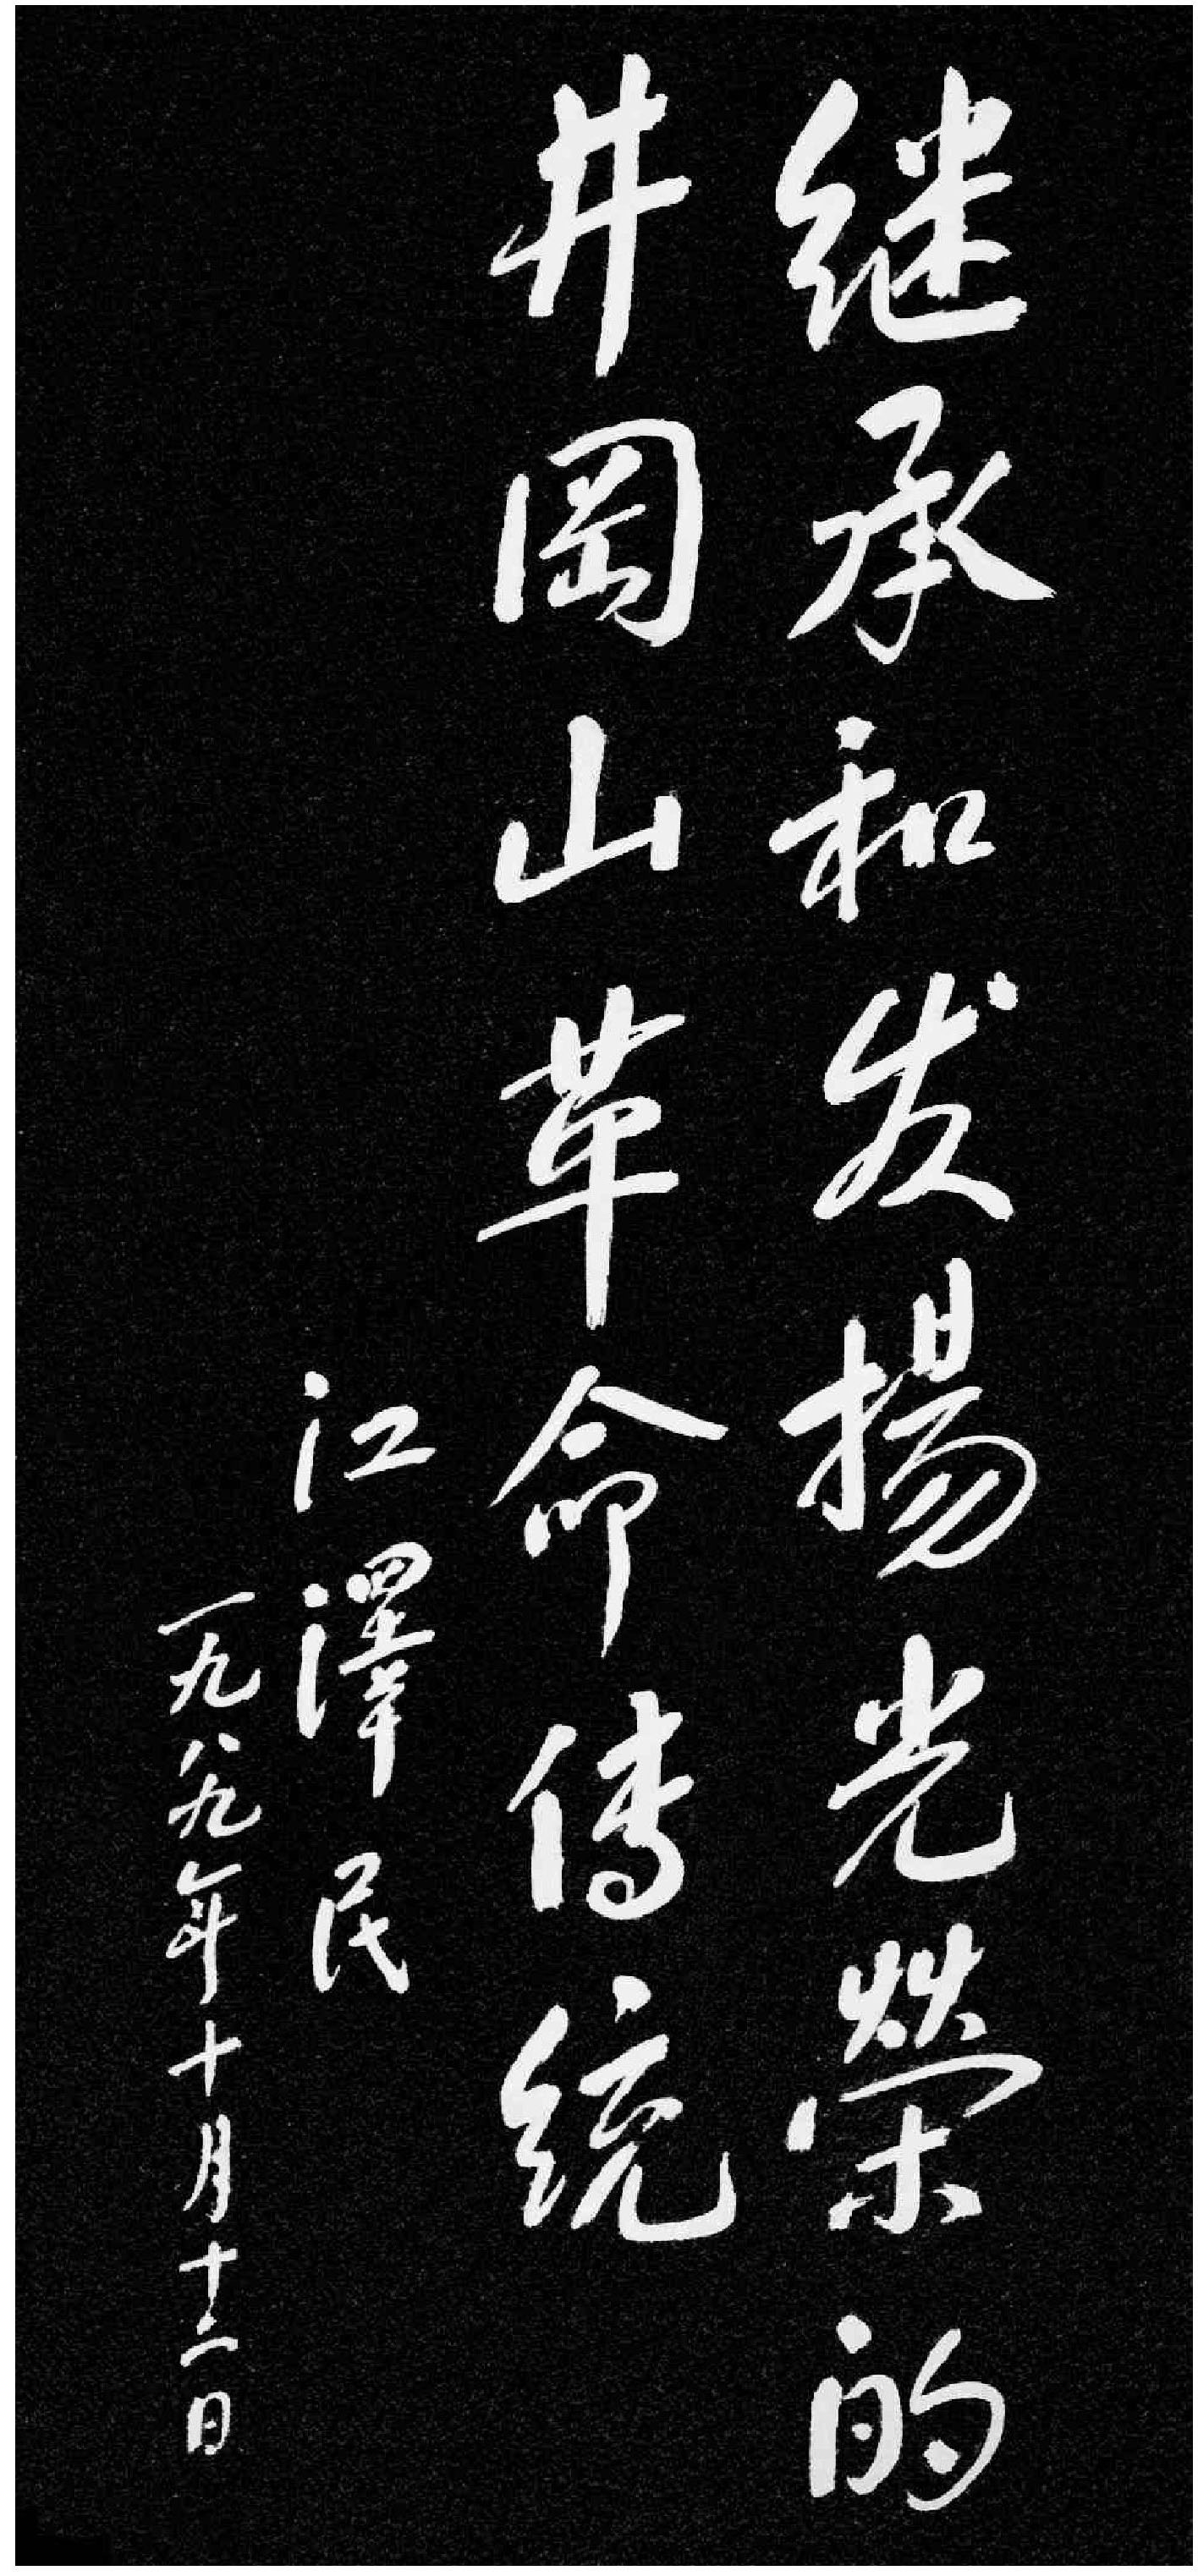 继承和发揚光榮的
井岡山革命傳统
江澤民
一九八九年十月十二日